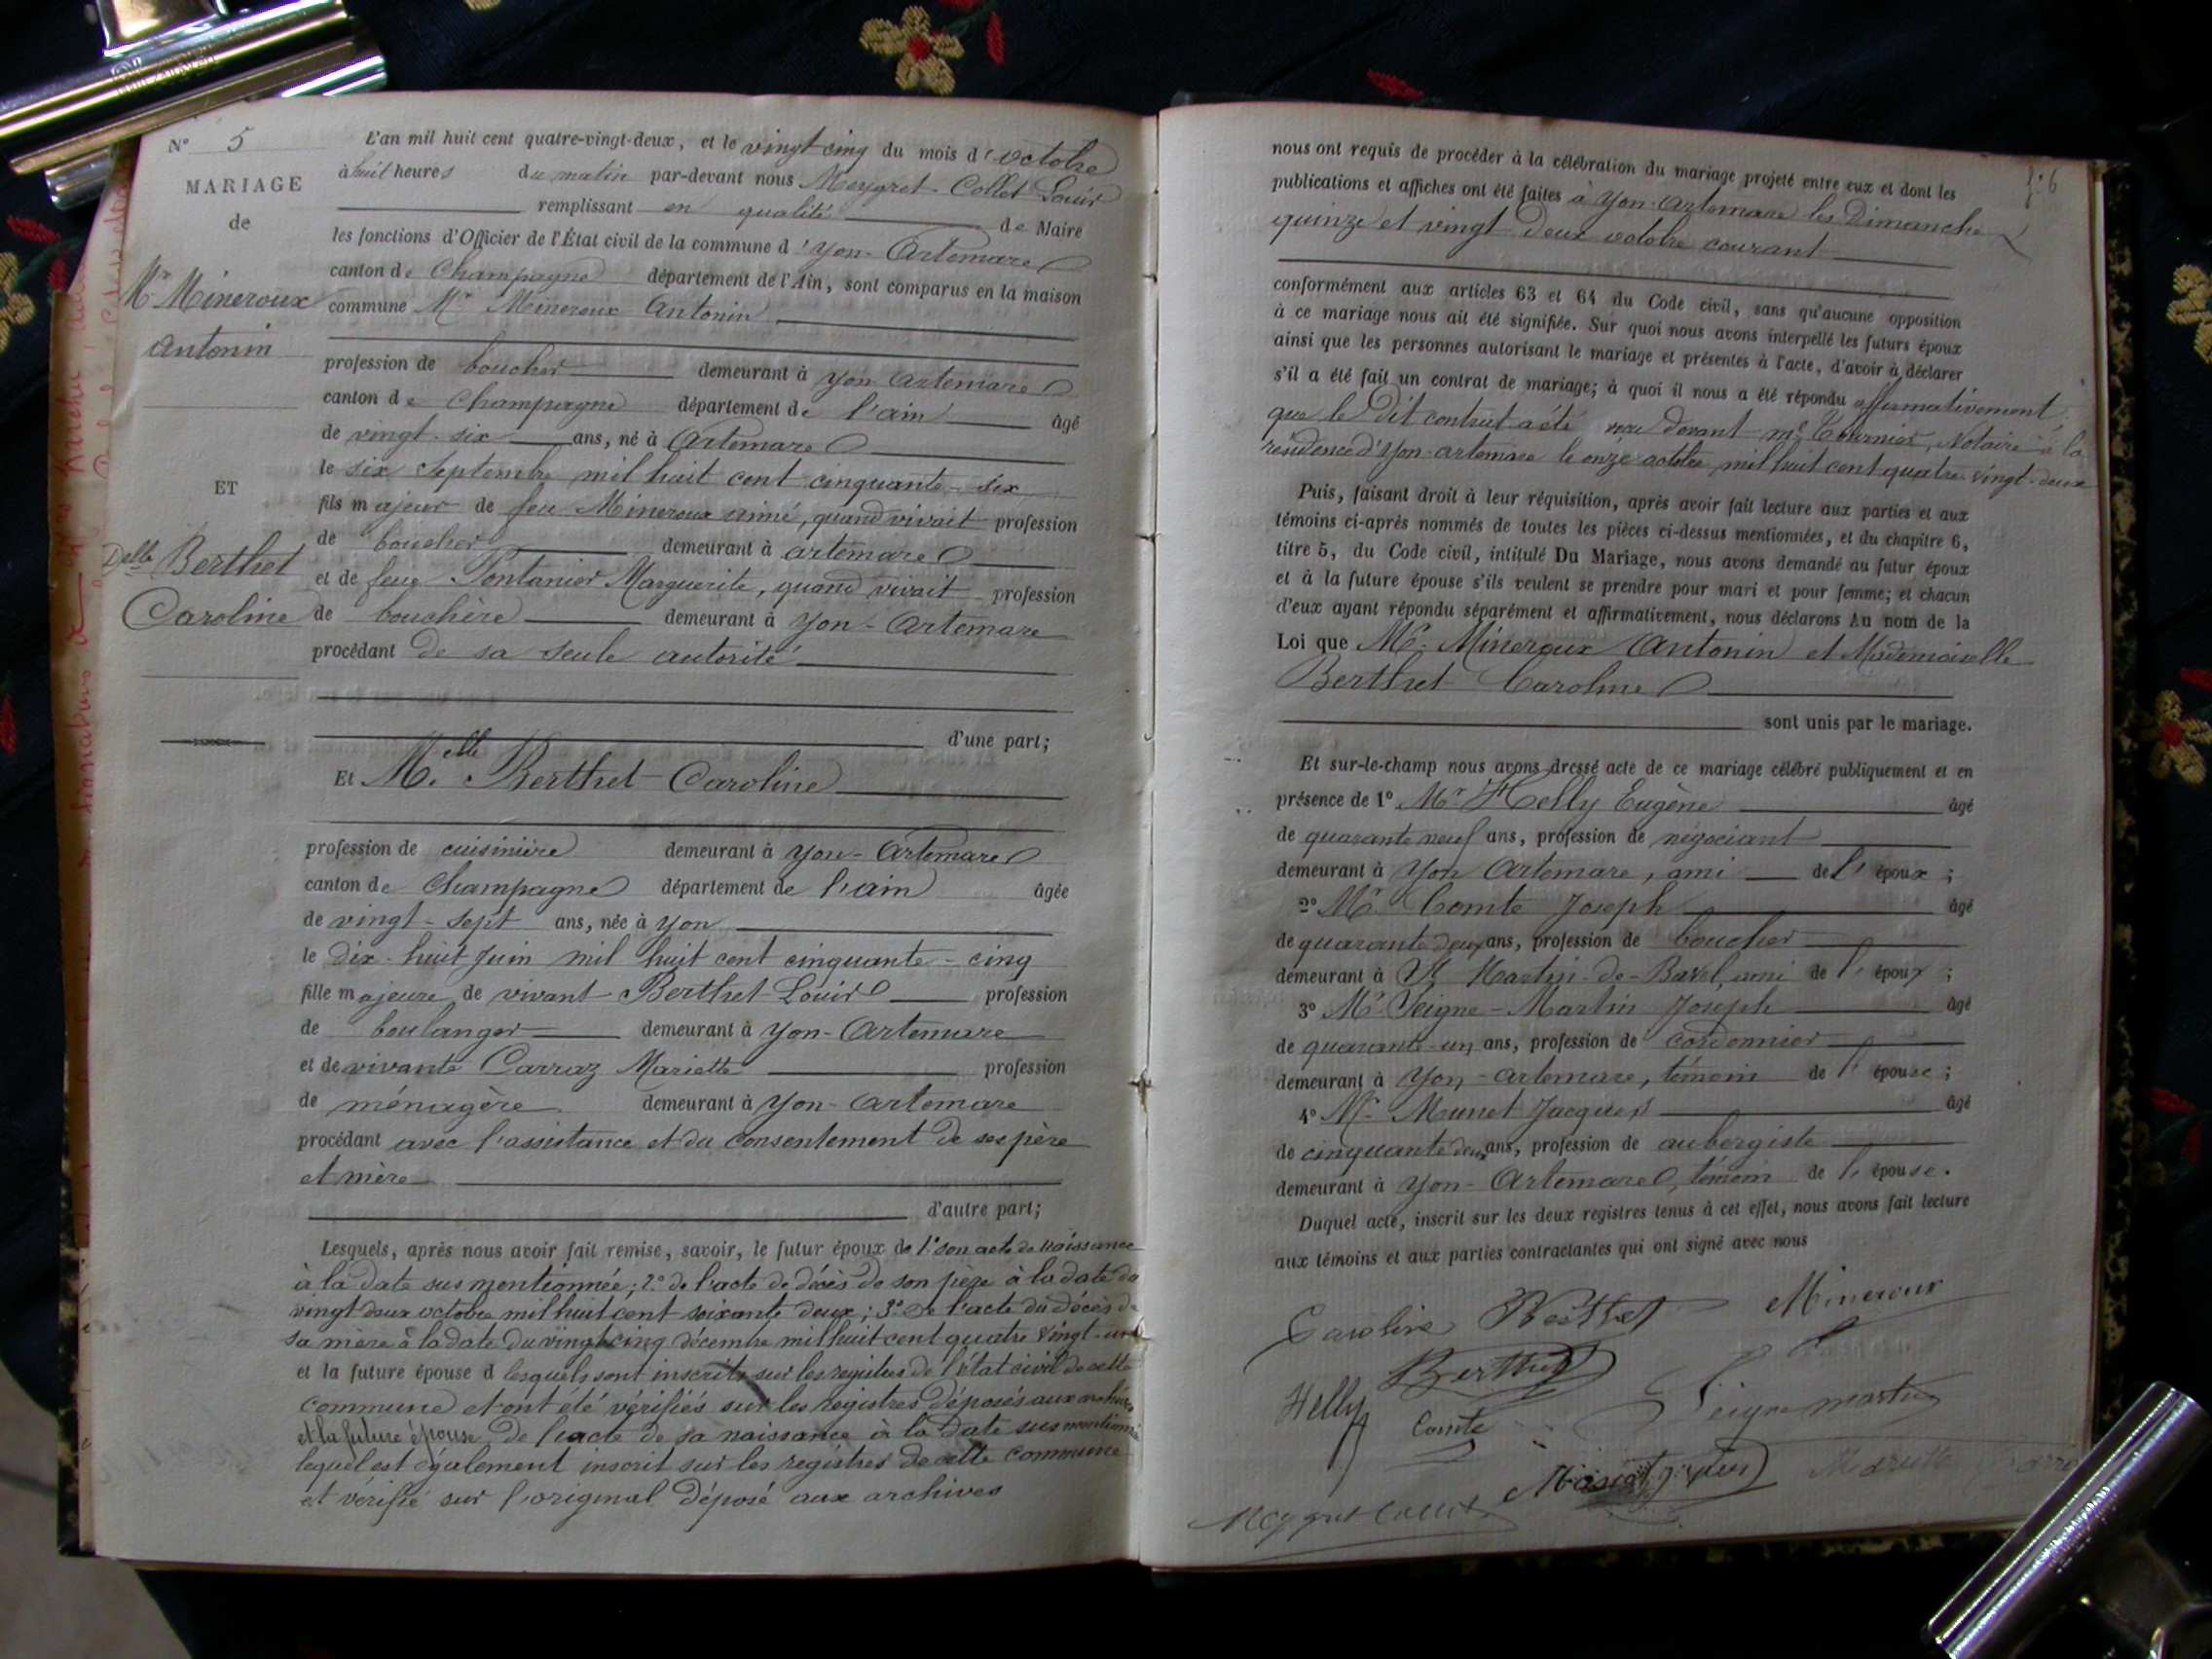 N° 5
MARIAGE
de
Mr Mineroux
Antonin
ET
Delle Berthet
Caroline
L'an mil huit cent quatre-vingt-deux, et le vingt cinq du mois d'octobre
à huit heures du matin par-devant nous Meygret-Collet Louis
remplissant en qualité de Maire
les fonctions d'Officier de l'État civil de la commune d'yon-Artemare
canton de Champagne département de l'Ain, sont comparus en la maison
commune Mr Mineroux Antonin
profession de boucher demeurant à yon-artemare
canton de Champagne département de l'ain âgé
de vingt-six ans, né à Artemare
le six septembre mil huit cent cinquante-six
fils majeur de feu Mineroux aimé, quand vivait profession
de boucher demeurant à artemare
et de feue Pontanier Marguerite, quand vivait profession
de bouchère demeurant à yon-Artemare
procédant de sa seule autorité
d'une part;
Et Melle Berthet Caroline
profession de cuisinière demeurant à yon-Artemare
canton de Champagne département de l'ain âgée
de vingt-sept ans, née à yon
le dix-huit juin mil huit cent cinquante-cinq
fille majeure de vivant Berthet Louis profession
de boulanger demeurant à yon-Artemare
et de vivante Carraz Mariette profession
de ménagère demeurant à yon-artemare
procédant avec l'assistance et du consentement de ses père
et mère
d'autre part;
Lesquels, après nous avoir fait remise, savoir, le futur époux de 1° son acte de naissance
à la date sus mentionnée; 2° de l'acte de décès de son père à la date du
vingt deux octobre mil huit cent soixante deux; 3° de l'acte du décès de
sa mère à la date du vingt cinq décembre mil huit cent quatre vingt-un
et la future épouse d lesquels sont inscrits sur les registres de l'état civil de cette
commune et ont été vérifiés sur les registres déposés aux archives
et la future épouse, de l'acte de sa naissance à la date sus mentionnée
lequel est également inscrit sur les registres de cette commune
et vérifié sur l'original déposé aux archives
f° 6
nous ont requis de procéder à la célébration du mariage projeté entre eux et dont les
publications et affiches ont été faites à yon-artemare les Dimanche
quinze et vingt deux octobre courant
conformément aux articles 63 et 64 du Code civil, sans qu'aucune opposition
à ce mariage nous ait été signifiée. Sur quoi nous avons interpellé les futurs époux
ainsi que les personnes autorisant le mariage et présentes à l'acte, d'avoir à déclarer
s'il a été fait un contrat de mariage; à quoi il nous a été répondu affirmativement
que le dit contrat a été reçu devant me Notaire à la
résidence d'yon-artemare le onze octobre mil huit cent quatre vingt-deux
Puis, faisant droit à leur réquisition, après avoir fait lecture aux parties et aux
témoins ci-après nommés de toutes les pièces ci-dessus mentionnées, et du chapitre 6,
titre 5, du Code civil, intitulé Du Mariage, nous avons demandé au futur époux
et à la future épouse s'ils veulent se prendre pour mari et pour femme; et chacun
d'eux ayant répondu séparément et affirmativement, nous déclarons Au nom de la
Loi que Mr Mineroux Antonin et Mademoiselle
Berthet Caroline
sont unis par le mariage.
Et sur-le-champ nous avons dressé acte de ce mariage célébré publiquement et en
présence de 1° Mr Helly Eugène âgé
de quarante neuf ans, profession de négociant
demeurant à yon artemare, ami de l'époux;
2° Mr Comte Joseph âgé
de quarante deux ans, profession de boucher
demeurant à St Martin-de-Bavel, ami de l'époux;
3° Mr Seigne-Martin Joseph âgé
de quarante-un ans, profession de cordonnier
demeurant à yon-artemare, témoin de l'épouse;
4° Mr Munet Jacques âgé
de cinquante deux ans, profession de aubergiste
demeurant à yon-Artemare, témoin de l'épouse.
Duquel acte, inscrit sur les deux registres tenus à cet effet, nous avons fait lecture
aux témoins et aux parties contractantes qui ont signé avec nous
Caroline Berthet Mineroux
Berthet
Helly Comte Seigne martin
Meygret Collet